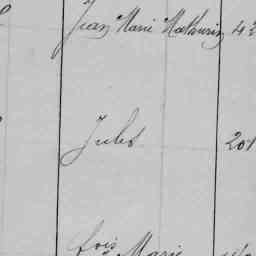 Jean Marie Mathurin 43
Jules 201
fois Marie